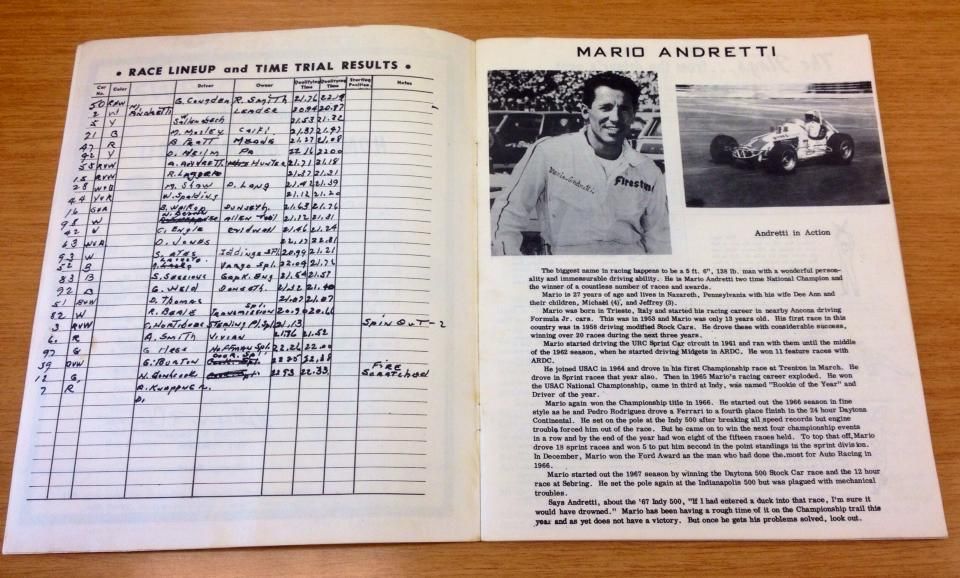 • RACE LINEUP and TIME TRIAL RESULTS •
Car No. Color Driver Owner Qualifying Time Qualifying Time Starting Position Notes
50 R&W G. Congdon R. Smith 21.76 22.19
2 W M. Andretti Leader 20.94 20.87
5 Y 21.53 21.32
21 B M. Mosley 21.37 21.47
47 R B. Pratt 21.27 21.08
92 Y O. 22.16 2200
55 RVW A. Andretti Hunter 21.71 21.18
15 RVW 21.37 21.31
28 M. Shaw D. Long 21.42 21.39
44 W. Spalding 21.12 21.20
16 Dunseth 21.63 21.76
98 W Allen
42 V C. Engle 21.46 21.24
63 D. Jones 22.17
93 W 20.99 21.21
52 B Vargo Spl. 22.04
83 B S. Sessions 21.54 21.57
92 G. Weld 21.32
51 D. Thomas 21.07
82 W Transmission Spl.
3 RVW Sterling Spl. 21.13 Spin Out - 2
6. R A. Smith Vivian 21.52
97 G G. Hoffman Spl. 22.26 22.00
39 G. Burton
12 G, 22.33 Fire Scratched
7 R
MARIO ANDRETTI
Mario Andretti
Firestone
Andretti in Action
The biggest name in racing happens to be a 5 ft. 6", 138 lb. man with a wonderful person-
ality and immeasurable driving ability. He is Mario Andretti two time National Champion and
the winner of a countless number of races and awards.
Mario is 27 years of age and lives in Nazareth, Pennsylvania with his wife Dee Ann and
their children, Michael (4), and Jeffrey (3).
Mario was born in Trieste, Italy and started his racing career in nearby Ancona driving
Formula Jr. cars. This was in 1953 and Mario was only 13 years old. His first race in this
country was in 1958 driving modified Stock Cars. He drove these with considerable success,
winning over 20 races during the next three years.
Mario started driving the URC Sprint Car circuit in 1961 and ran with them until the middle
of the 1962 season, when he started driving Midgets in ARDC. He won 11 feature races with
ARDC.
He joined USAC in 1964 and drove in his first Championship race at Trenton in March. He
drove in Sprint races that year also. Then in 1965 Mario's racing career exploded. He won
the USAC National Championship, came in third at Indy, was named "Rookie of the Year" and
Driver of the year.
Mario again won the Championship title in 1966. He started out the 1966 season in fine
style as he and Pedro Rodriguez drove a Ferrari to a fourth place finish in the 24 hour Daytona
Continental. He set on the pole at the Indy 500 after breaking all speed records but engine
trouble forced him out of the race. But he came on to win the next four championship events
in a row and by the end of the year had won eight of the fifteen races held. To top that off, Mario
drove 18 sprint races and won 5 to put him second in the point standings in the sprint division.
In December, Mario won the Ford Award as the man who had done the most for Auto Racing in
1966.
Mario started out the 1967 season by winning the Daytona 500 Stock Car race and the 12 hour
race at Sebring. He set the pole again at the Indianapolis 500 but was plagued with mechanical
troubles.
Says Andretti, about the '67 Indy 500, "If I had entered a duck into that race, I'm sure it
would have drowned." Mario has been having a rough time of it on the Championship trail this
year and as yet does not have a victory. But once he gets his problems solved, look out.